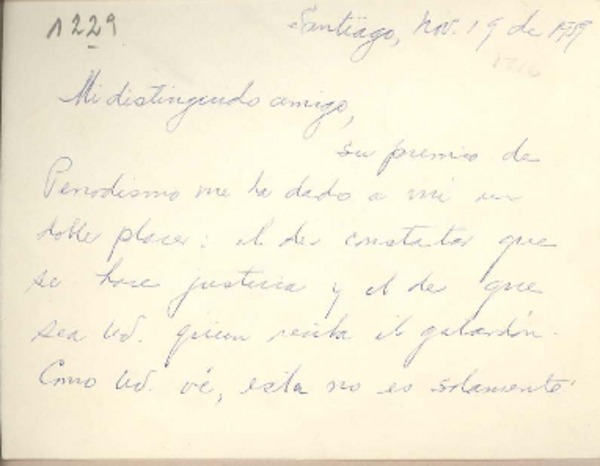 1229
Santiago, Nov. 19 de 1959
Mi distinguido amigo,
su premio de
Periodismo me ha dado a mi un
doble placer: el de constatar que
se hace justicia y el de que
sea Ud. quien reciba el galardón.
Como Ud. vé, esta no es solamente